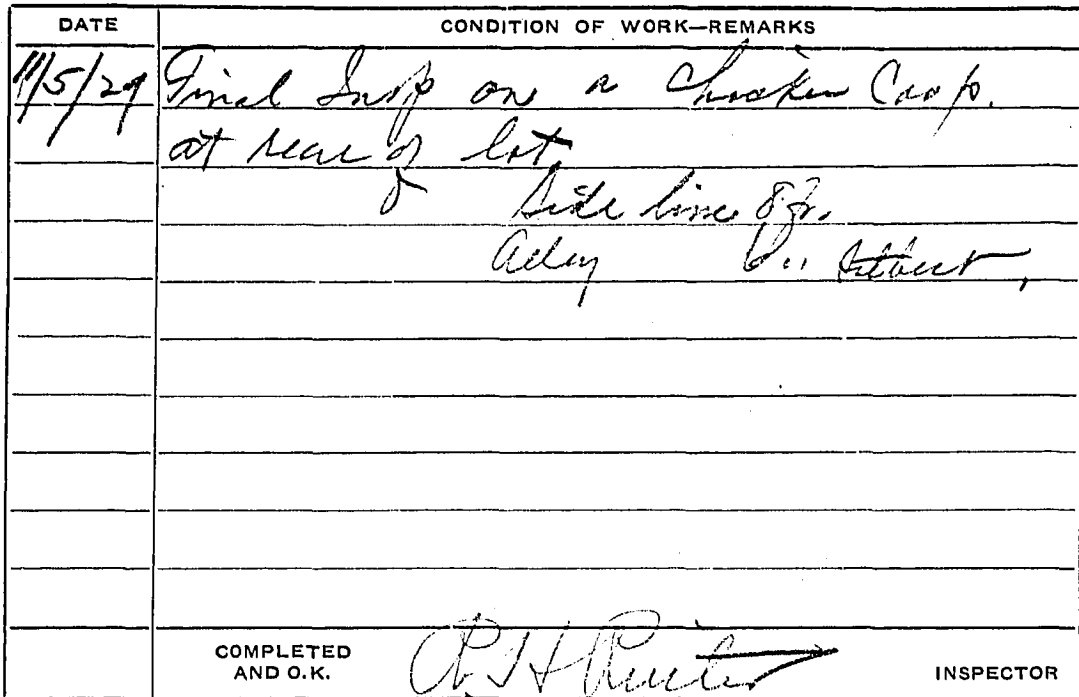 DATE CONDITION OF WORK—REMARKS
11/5/29 Final Insp on a Chicken Coop.
at rear of lot.
Side line 8 ft.
COMPLETED
AND O.K. INSPECTOR